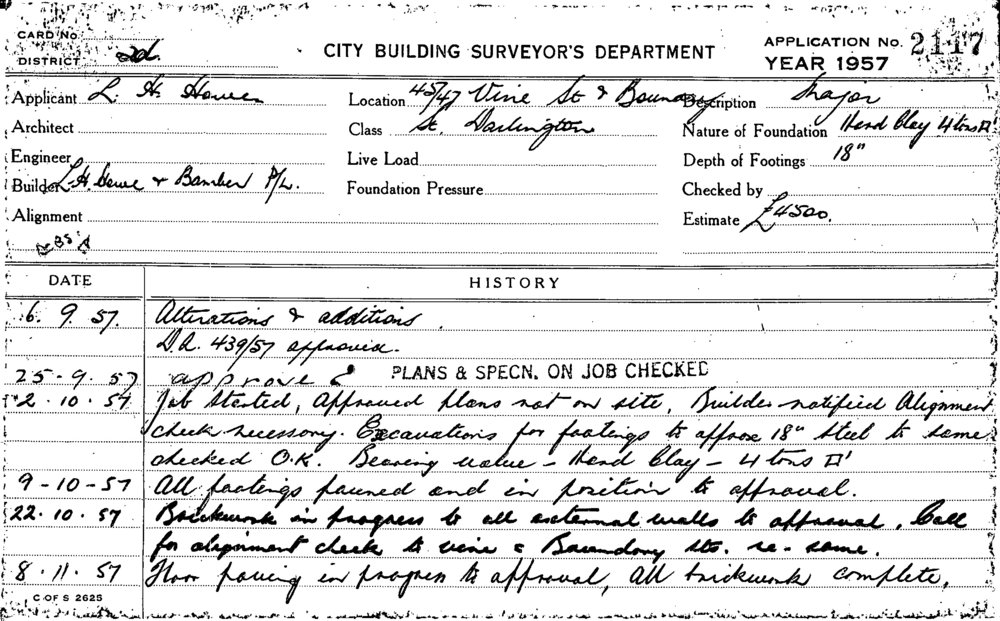 CARD No.
DISTRICT 2d.
CITY BUILDING SURVEYOR'S DEPARTMENT
APPLICATION No. 2117
YEAR 1957
Applicant L. H. Howe
Location 45/47 Vine St & Boundary
Description Major
Architect
Class St. Darlington
Nature of Foundation Hard Clay 4 tons □'
Engineer
Live Load
Depth of Footings 18"
Builder L. H. Howe & Bamber P/L.
Foundation Pressure
Checked by
Alignment
Estimate £4500.
DATE
HISTORY
6. 9. 57. Alterations & additions.
D.A. 439/57 approved.
25-9.57 approved PLANS & SPECN. ON JOB CHECKED
2.10.57 Job started, Approved plans not on site, Builder notified Alignment
check necessary. Excavations for footings to approx 18" Steel to same
checked O.K. Bearing value - Hard Clay - 4 tons □'
9-10-57 All footings poured and in position to approval.
22.10.57 Brickwork in progress to all external walls to approval. Call
for alignment check to vine & Boundary sts. re-same.
8.11.57 Floor paving in progress to approval, All brickwork complete.
C OF S 2625